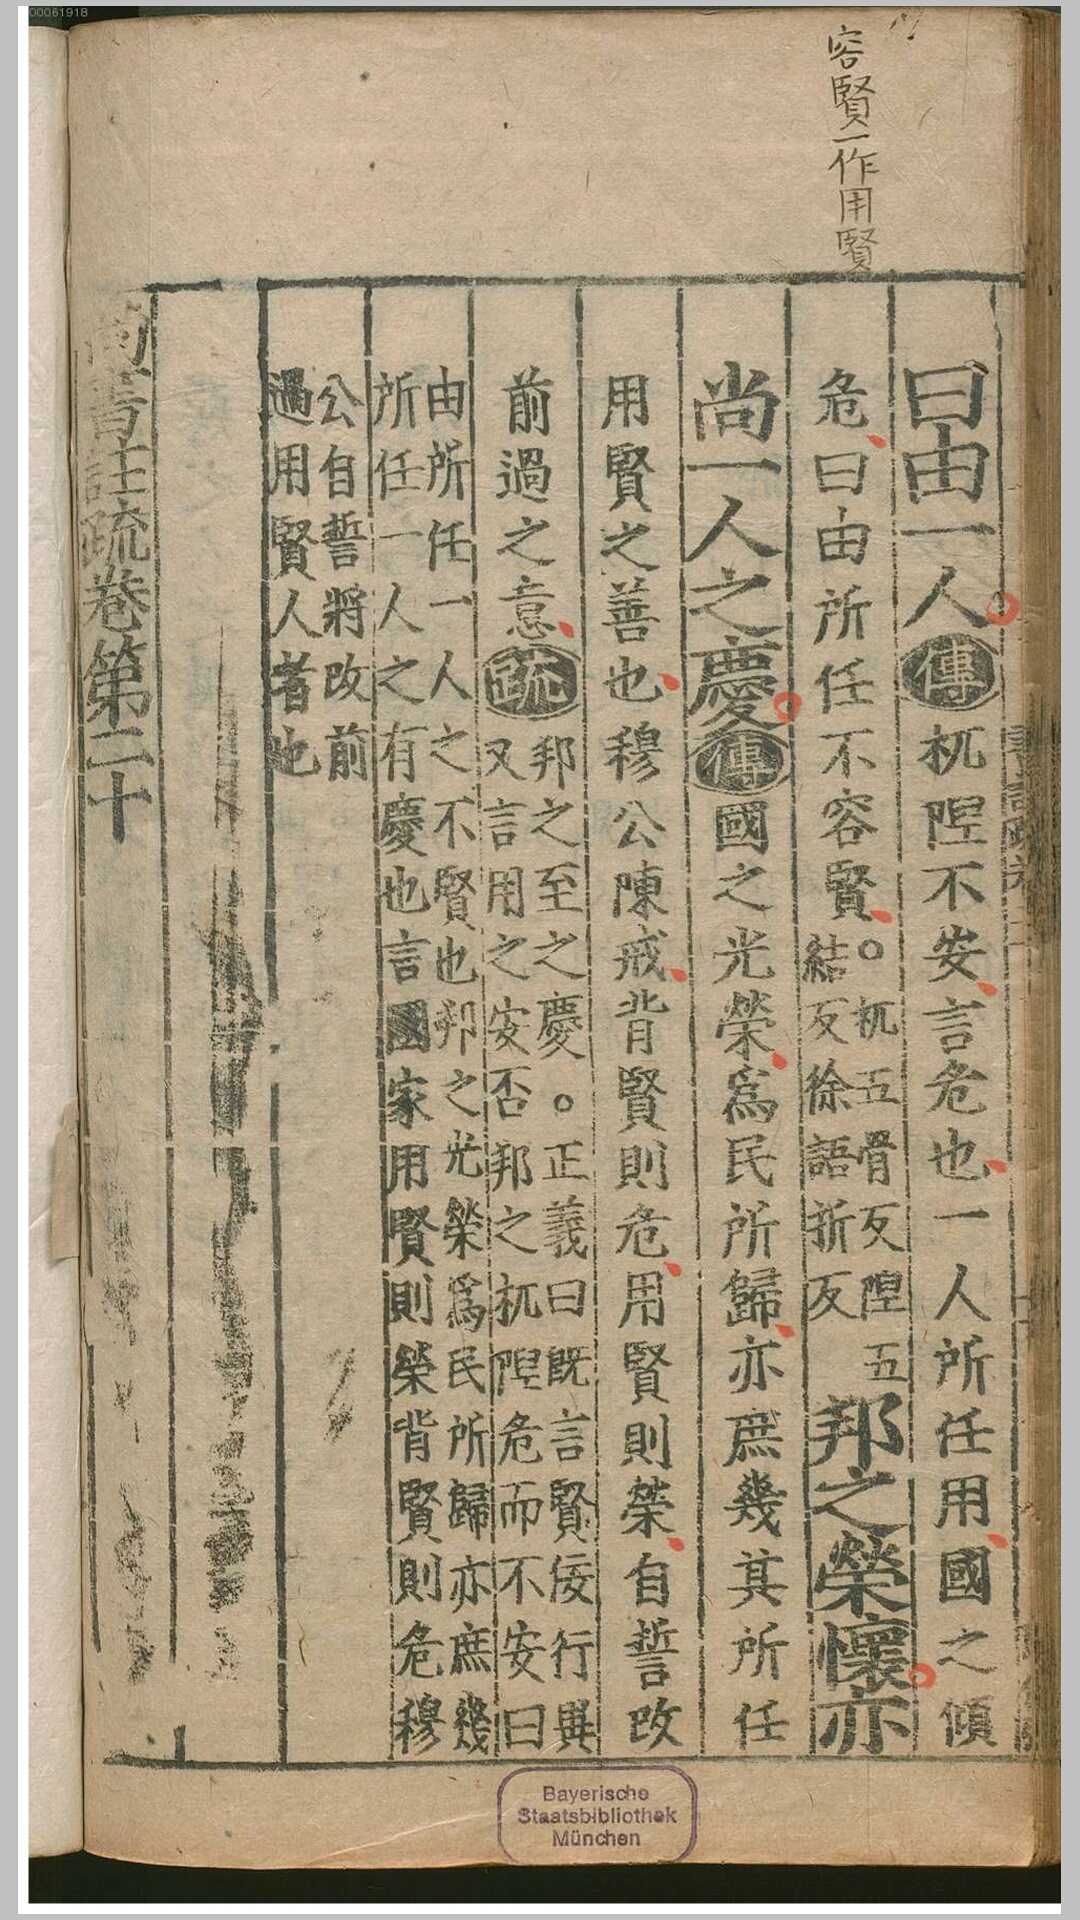 00061918
容賢一作用賢
曰由一人。傳杌隉不安言危也一人所任用國之傾
危曰由所任不容賢。杌五骨反隉五
結反徐語折反
邦之榮懷亦
尚一人之慶傳國之光榮爲民所歸亦庶幾其所任
用賢之善也穆公陳戒背賢則危用賢則榮自誓改
前過之意疏邦之至之慶。正義曰既言賢佞行異
又言用之安否邦之杌隉危而不安曰
由所任一人之不賢也邦之光榮爲民所歸亦庶幾
所任一人之有慶也言國家用賢則榮背賢則危穆
公自誓將改前
過用賢人者也
尚書註疏卷第二十
Bayerische
Staatsbibliothek
München